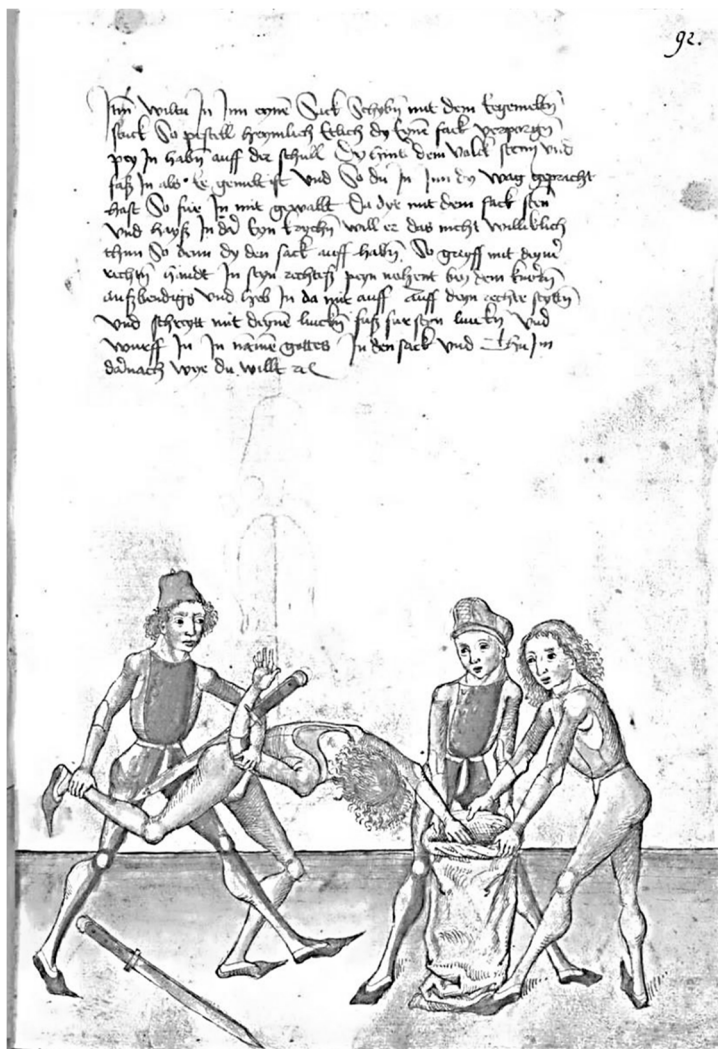 92.
Itm̅ wiltu In Inn eyne͂ Sack Schybn̄ mit dem
stuck So pestell heymlich Etlich dy eyne͂ sack verporgn̄
pey In habn̄ auff der schull Dy hint dem Valck sten̄ und
faß In als e gemelt ist und So du In Inn dy wag gepracht
hast So für In mit gewallt Da dye mit dem sack sten̄
und hayß In dar̄ eyn krychn̄ will er das nicht williklich
thun So denn dy den sack auff habn̄ So greyff mit deyne͂
rechtn̄ Hindt In seyn rechtess peyn nohent bei dem
außbendigs und heb In da mit auff Auff deyn rechte seyttn̄
und schreytt mit deyne͂ linckn̄ fuß fur sein linckn̄ und
wurff In In name͂ gottes In den sack und Thu Im
dar̄nach wye du willt